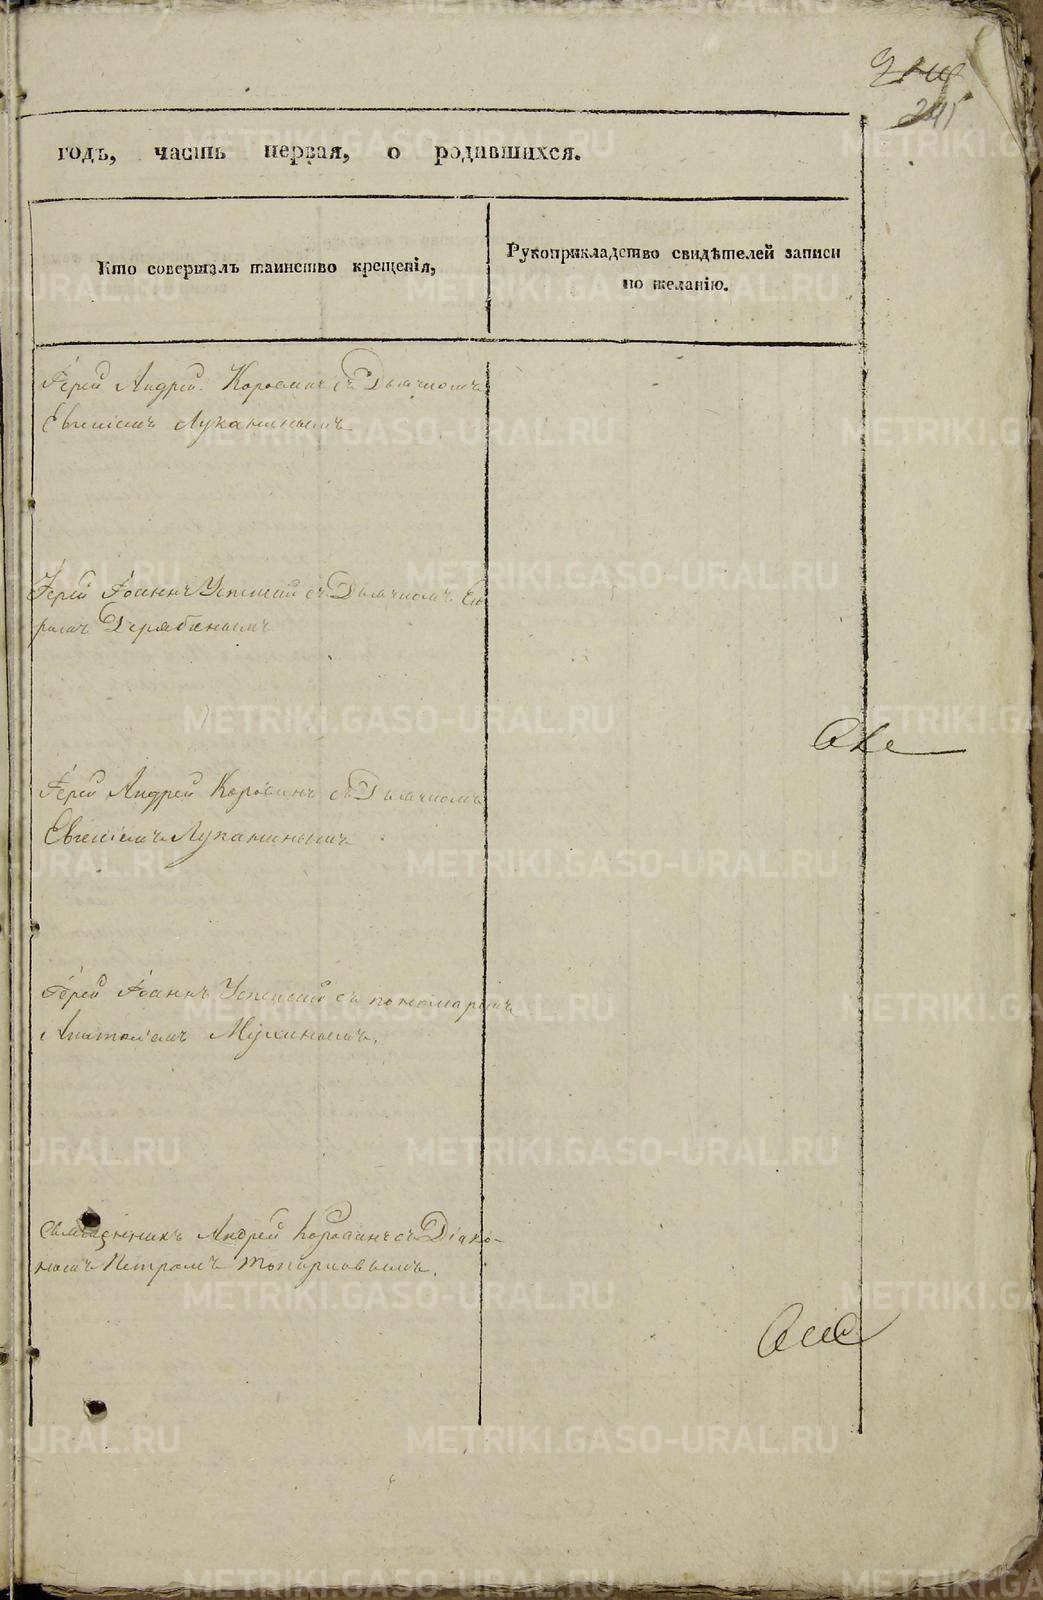 245
годъ, часть первая, о родившихся.
Кто совершалъ таинство крещенія,
Рукоприкладство свидѣтелей записи
по желанію.
Іерей Андрей Коровинъ съ Дьячкомъ
Евгеніемъ Луканинымъ
Іерей Іоаннъ Успенскій съ Дьячкомъ
Дерябинымъ
Іерей Андрей Коровинъ съ Дьячкомъ
Евгеніемъ Луканинымъ
Іерей Іоаннъ Успенскій съ пономаремъ
Анатоліемъ Мухинымъ.
Священникъ Андрей Коровинъ съ Діако-
номъ Петромъ Топорковымъ.
METRIKI.GASO-URAL.RU